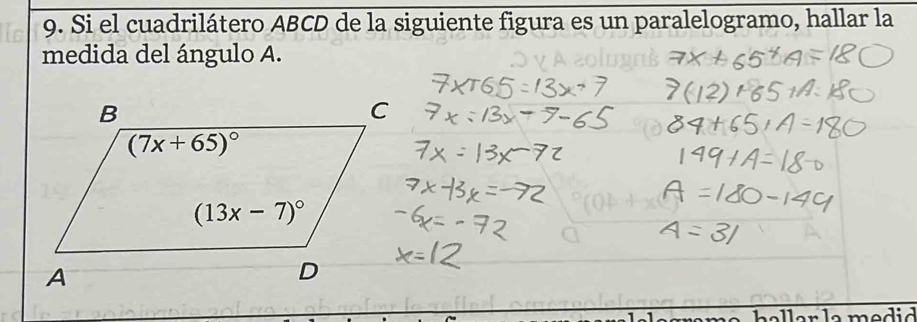 9. Si el cuadrilátero ABCD de la siguiente figura es un paralelogramo, hallar la
medida del ángulo A.
B
C
(7x+65)°
(13x − 7)°
A
D
7x+65=13x-7
7x=13x-7-65
7x=13x-72
7x-13x=-72
-6x=-72
x=12
7x+65+A=180
7(12)+65+A=180
84+65+A=180
149+A=180
A=180-149
A=31
hallar la medid